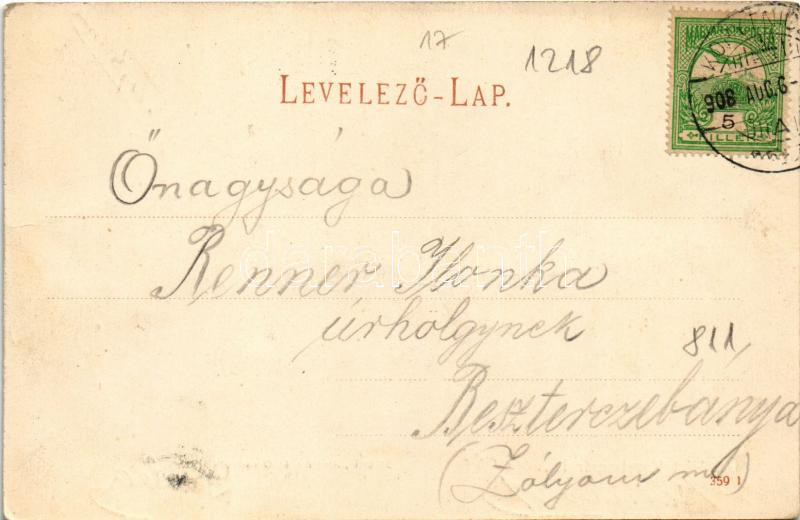 17
1218
LEVELEZŐ-LAP.
MAGYAR KIR. POSTA
908 AUG. 6
5
FILLÉR
Őnagysága
Renner Ilonka
úrhölgynek
811,
Beszterczebánya
(Zólyom m)
359 1
darabanth